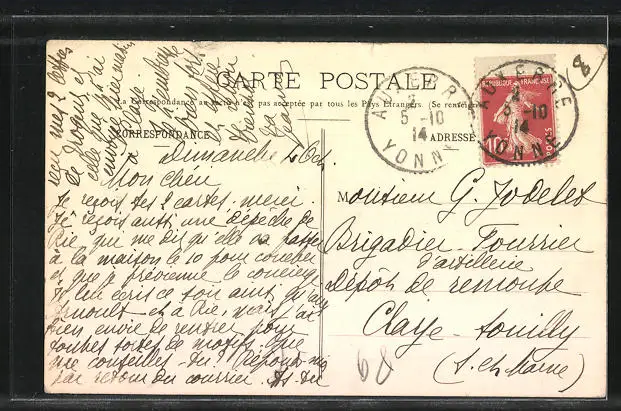 CARTE POSTALE
La Correspondance au recto n'est pas acceptée par tous les Pays Etrangers. (Se renseigner
CORRESPONDANCE
ADRESSE
AUXERRE
5 -10
14
YONNE
AUXERRE
5 -10
14
YONNE
REPUBLIQUE FRANÇAISE
10
POSTES
8
Dimanche 4 Oct.
Mon chéri
Je reçois tes 2 cartes. merci.
Je reçois aussi une dépêche de
Rie, que me dit qu'elle va passer
à la maison le 10 pour coucher
et que je prévienne le concierge
Je lui écris ce soir ainsi qu'aux
Arnoult et à Rie, mais j'ai
bien envie de rentrer pour
toutes sortes de motifs. Que
me conseilles-tu? Réponds-moi
par retour du courrier. As-tu
reçu mes 2 lettres
de Troyes et
celle que j'ai
envoyée hier matin
Monsieur G. Jodelet
Brigadier-Fourrier
d'artillerie
Dépôt de remonte
Claye-Souilly
(S. et Marne)
68